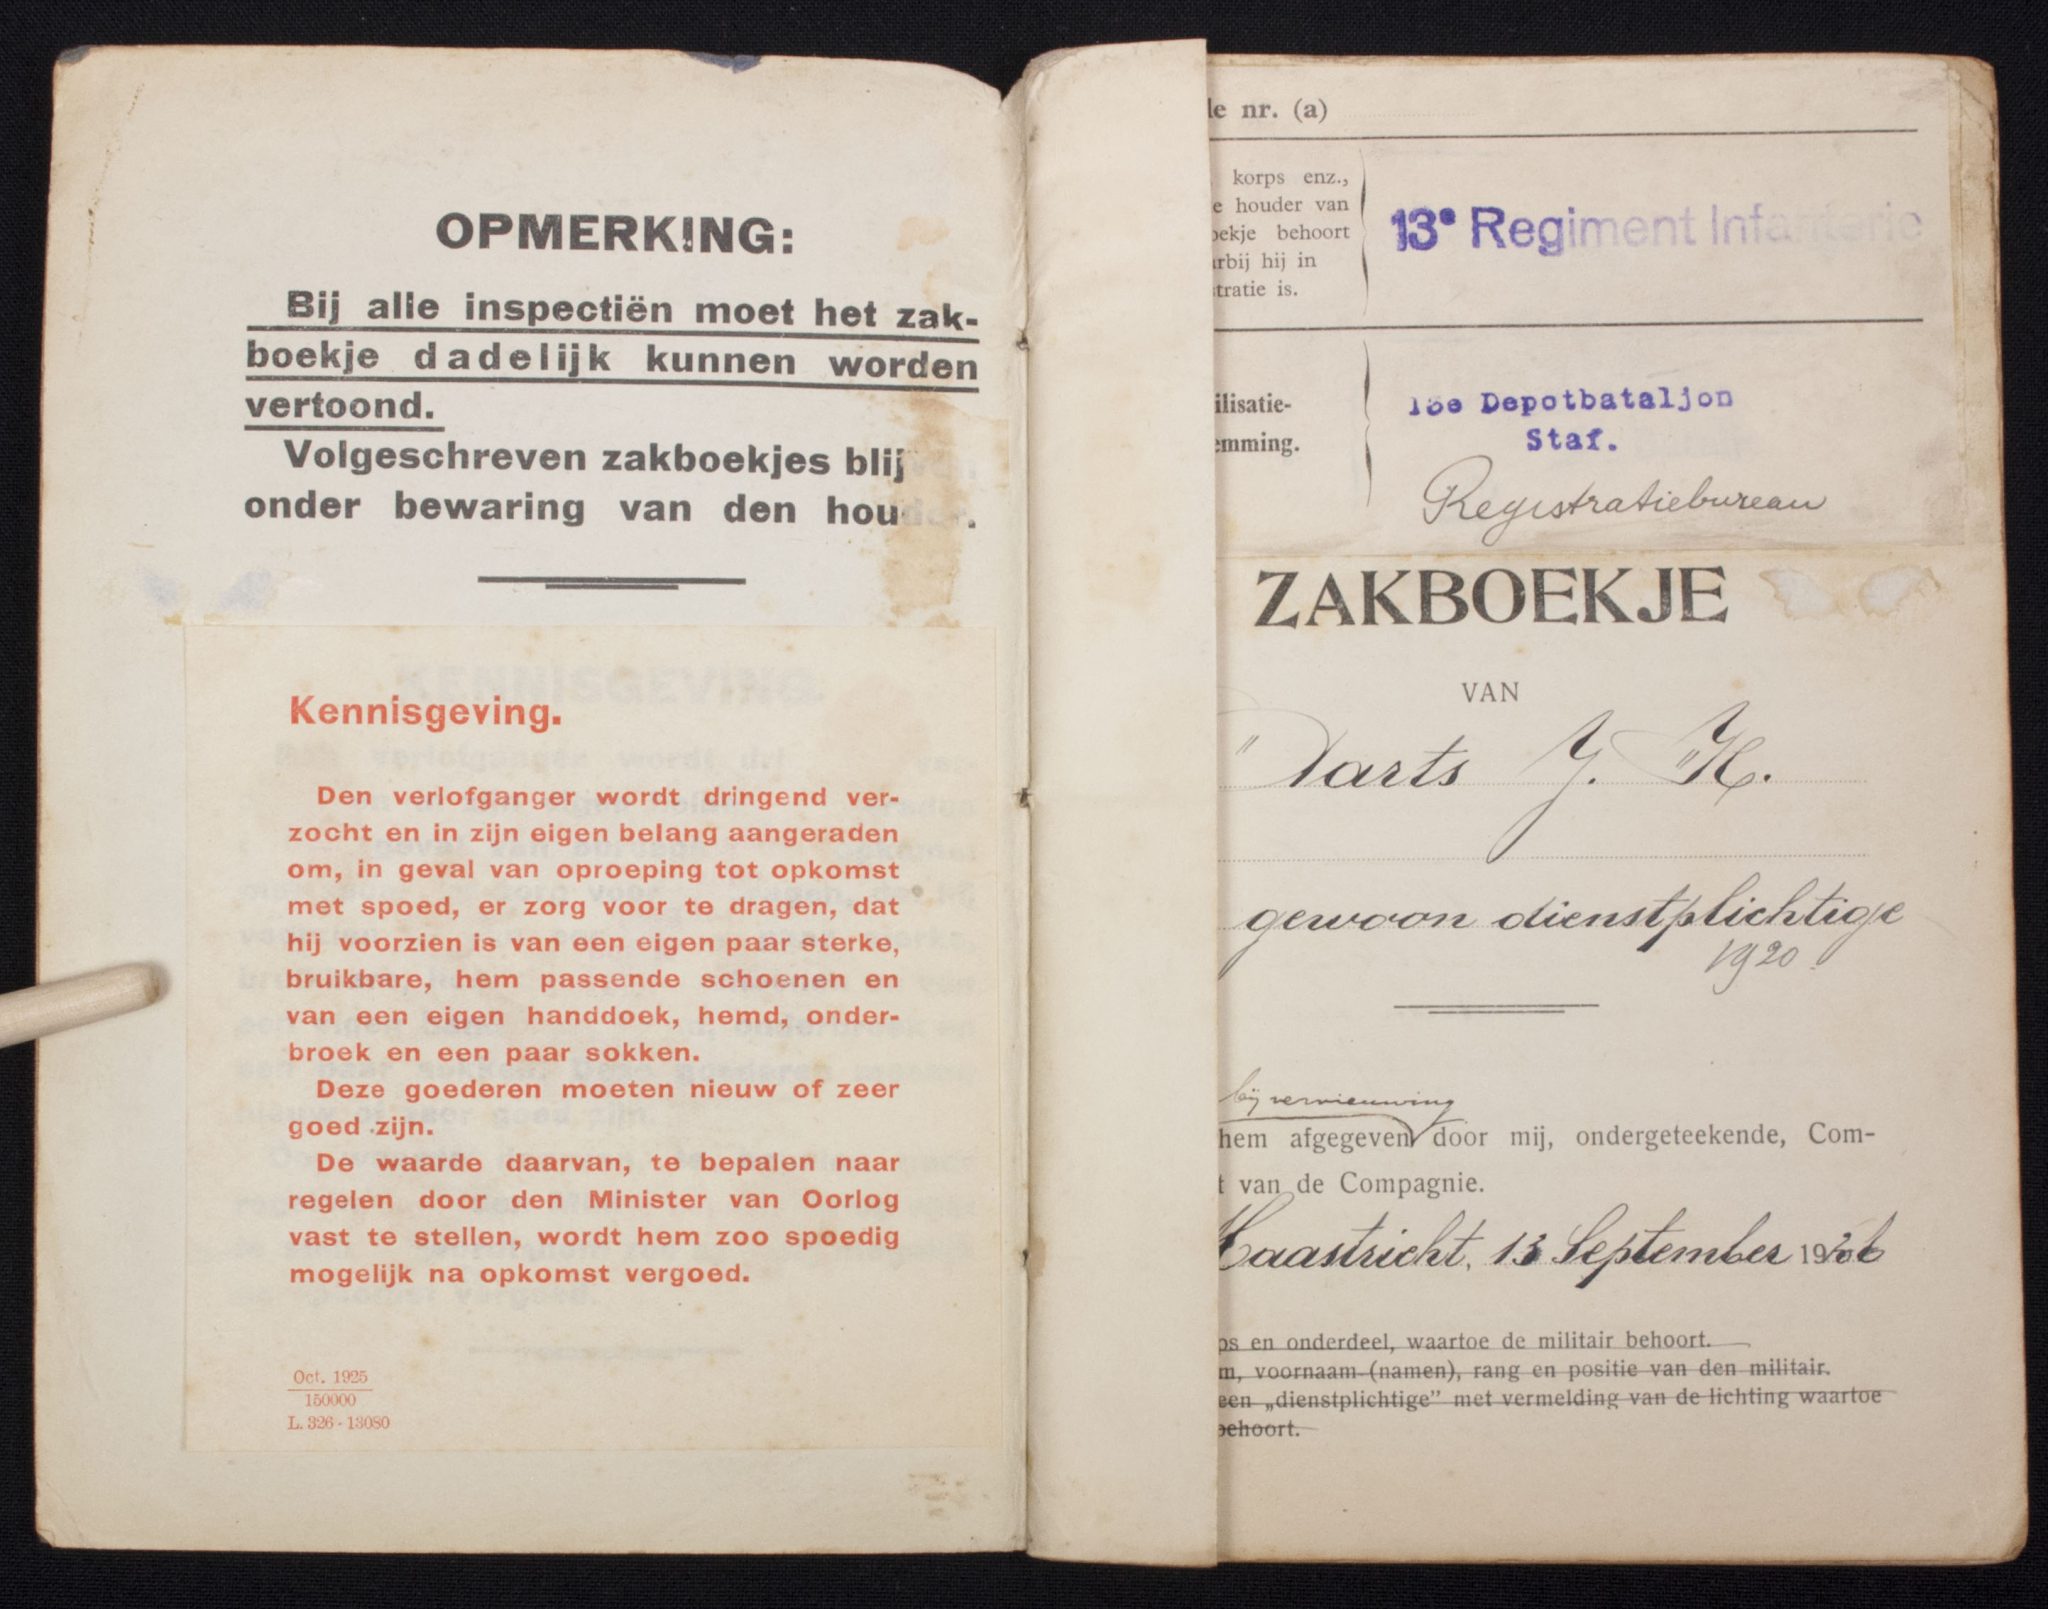 OPMERKING:
Bij alle inspectiën moet het zak-
boekje dadelijk kunnen worden
vertoond.
Volgeschreven zakboekjes blijven
onder bewaring van den houder.
KENNISGEVING.
Kennisgeving.
Den verlofganger wordt dringend ver-
zocht en in zijn eigen belang aangeraden
om, in geval van oproeping tot opkomst
met spoed, er zorg voor te dragen, dat
hij voorzien is van een eigen paar sterke,
bruikbare, hem passende schoenen en
van een eigen handdoek, hemd, onder-
broek en een paar sokken.
Deze goederen moeten nieuw of zeer
goed zijn.
De waarde daarvan, te bepalen naar
regelen door den Minister van Oorlog
vast te stellen, wordt hem zoo spoedig
mogelijk na opkomst vergoed.
Oct. 1925
150000
L. 326 - 13080
de nr. (a)
korps enz.,
e houder van
oekje behoort
arbij hij in
stratie is.
13e Regiment Infanterie
ilisatie-
emming.
13e Depotbataljon
Staf.
Registratiebureau
ZAKBOEKJE
VAN
Aarts J. H.
gewoon dienstplichtige
1920.
bij vernieuwing
hem afgegeven door mij, ondergeteekende, Com-
t van de Compagnie.
Maastricht, 13 September 1926
ps en onderdeel, waartoe de militair behoort.
m, voornaam (namen), rang en positie van den militair.
een „dienstplichtige” met vermelding van de lichting waartoe
behoort.